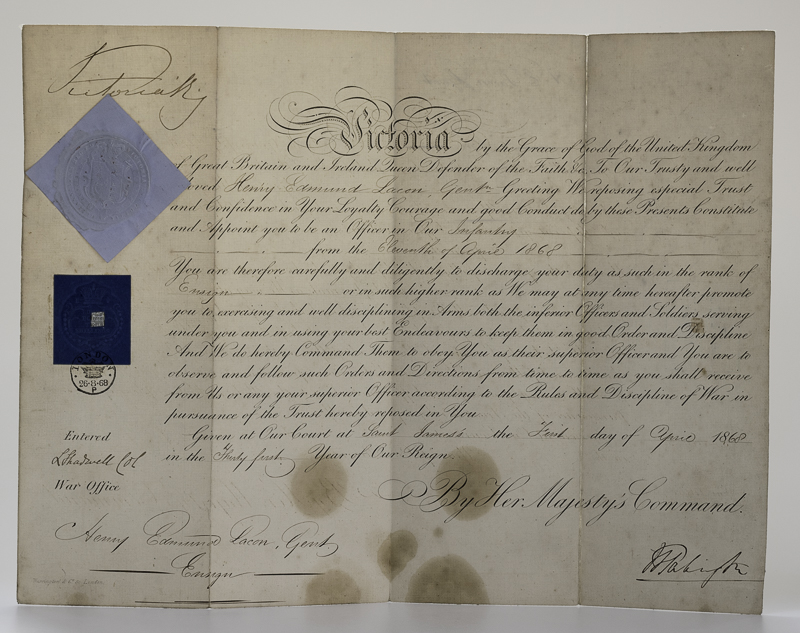 Victoria R
Victoria by the Grace of God of the United Kingdom
of Great Britain and Ireland Queen Defender of the Faith &c. To Our Trusty and well
loved Henry Edmund Lacon, Gentn Greeting We reposing especial Trust
and Confidence in Your Loyalty Courage and good Conduct do by these Presents Constitute
and Appoint you to be an Officer in Our Infantry
from the Eleventh of April 1868
You are therefore carefully and diligently to discharge your duty as such in the rank of
Ensign or in such higher rank as We may at any time hereafter promote
you to, exercising and well disciplining in Arms both the inferior Officers and Soldiers serving
under you and in using your best Endeavours to keep them in good Order and Discipline
And We do hereby Command Them to obey You as their superior Officer and You are to
observe and follow such Orders and Directions from time to time as you shall receive
from Us or any your superior Officer according to the Rules and Discipline of War in
pursuance of the Trust hereby reposed in You
Given at Our Court at Saint James's the First day of April 1868
in the Thirty first Year of Our Reign.
By Her Majesty's Command.
LONDON
26·8·68
P
Entered
War Office
Henry Edmund Lacon, Gent.
Ensign